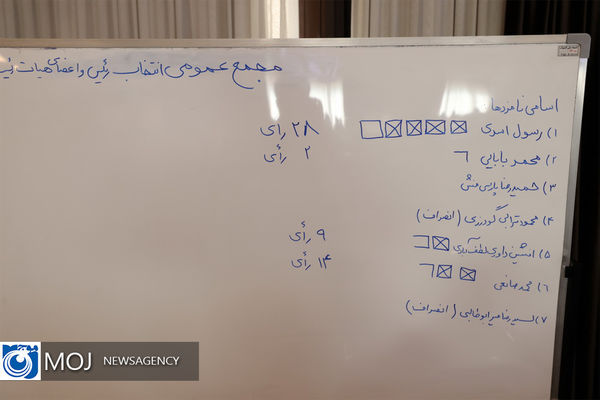 مجمع عمومی انتخاب رئیس و اعضای هیات رئیسه
اسامی نامزدها
۱) رسول اسدی ۲۸ رأی
۲) محمد بابایی ۲ رأی
۳) حمیدرضا پارسی منش
۴) محمود ترابی گودرزی (انصراف)
۵) افشین داوری لطف آبادی ۹ رأی
۶) محمد صانعی ۱۴ رأی
۷) سیدرضا میرابوطالبی (انصراف)
MOJ NEWSAGENCY